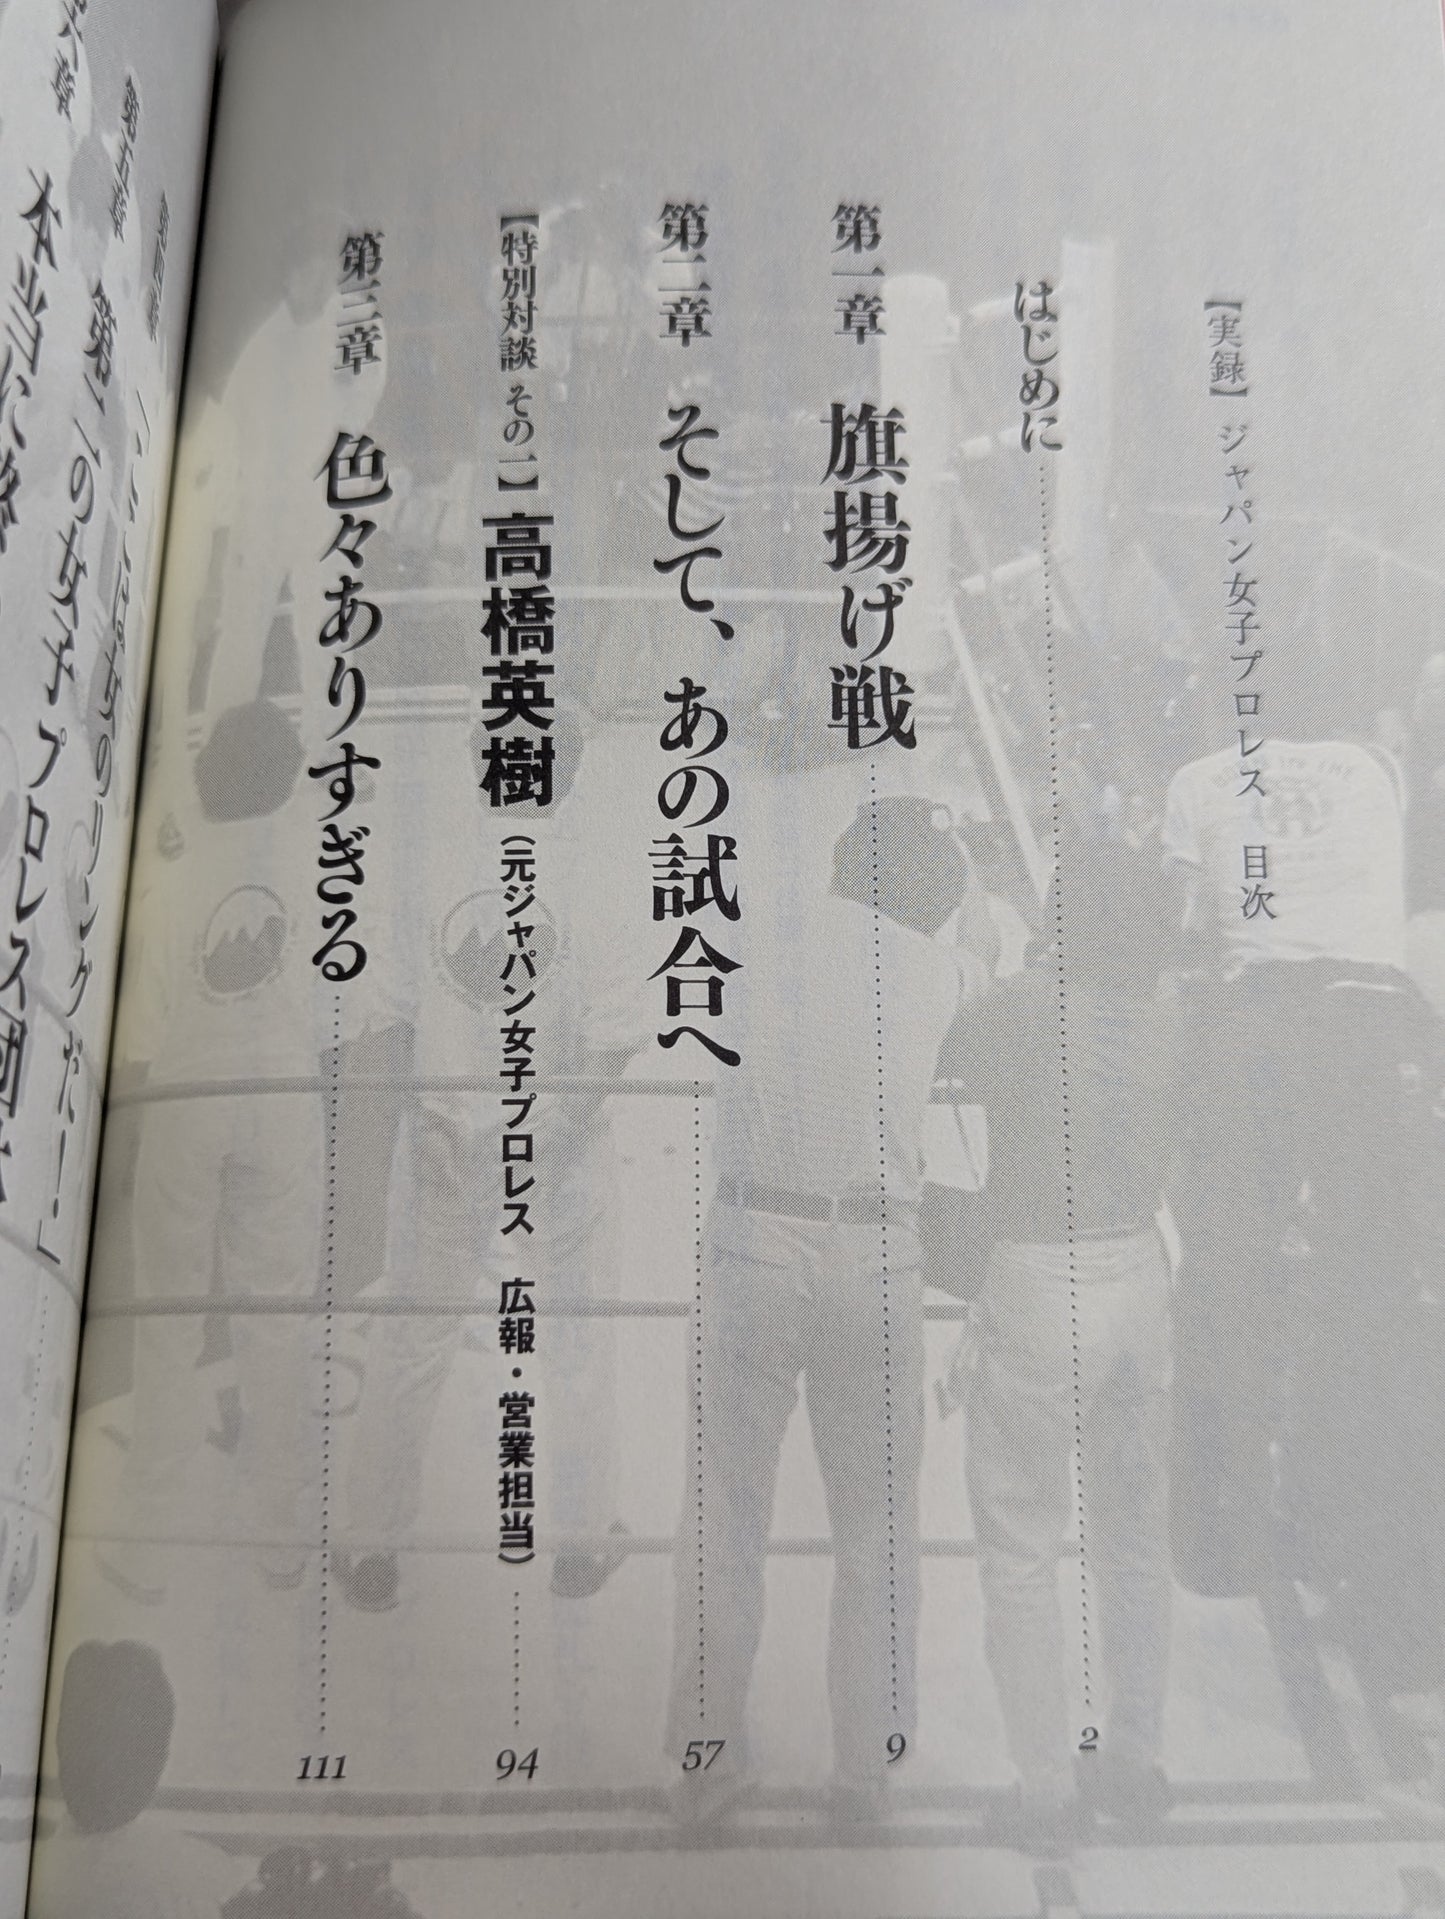 【実録】ジャパン女子プロレス 目次
はじめに 2
第一章 旗揚げ戦 9
第二章 そして、あの試合へ 57
【特別対談 その一】高橋英樹(元ジャパン女子プロレス 広報・営業担当) 94
第三章 色々ありすぎる 111
第四章
第五章 第二の女子プロレス団